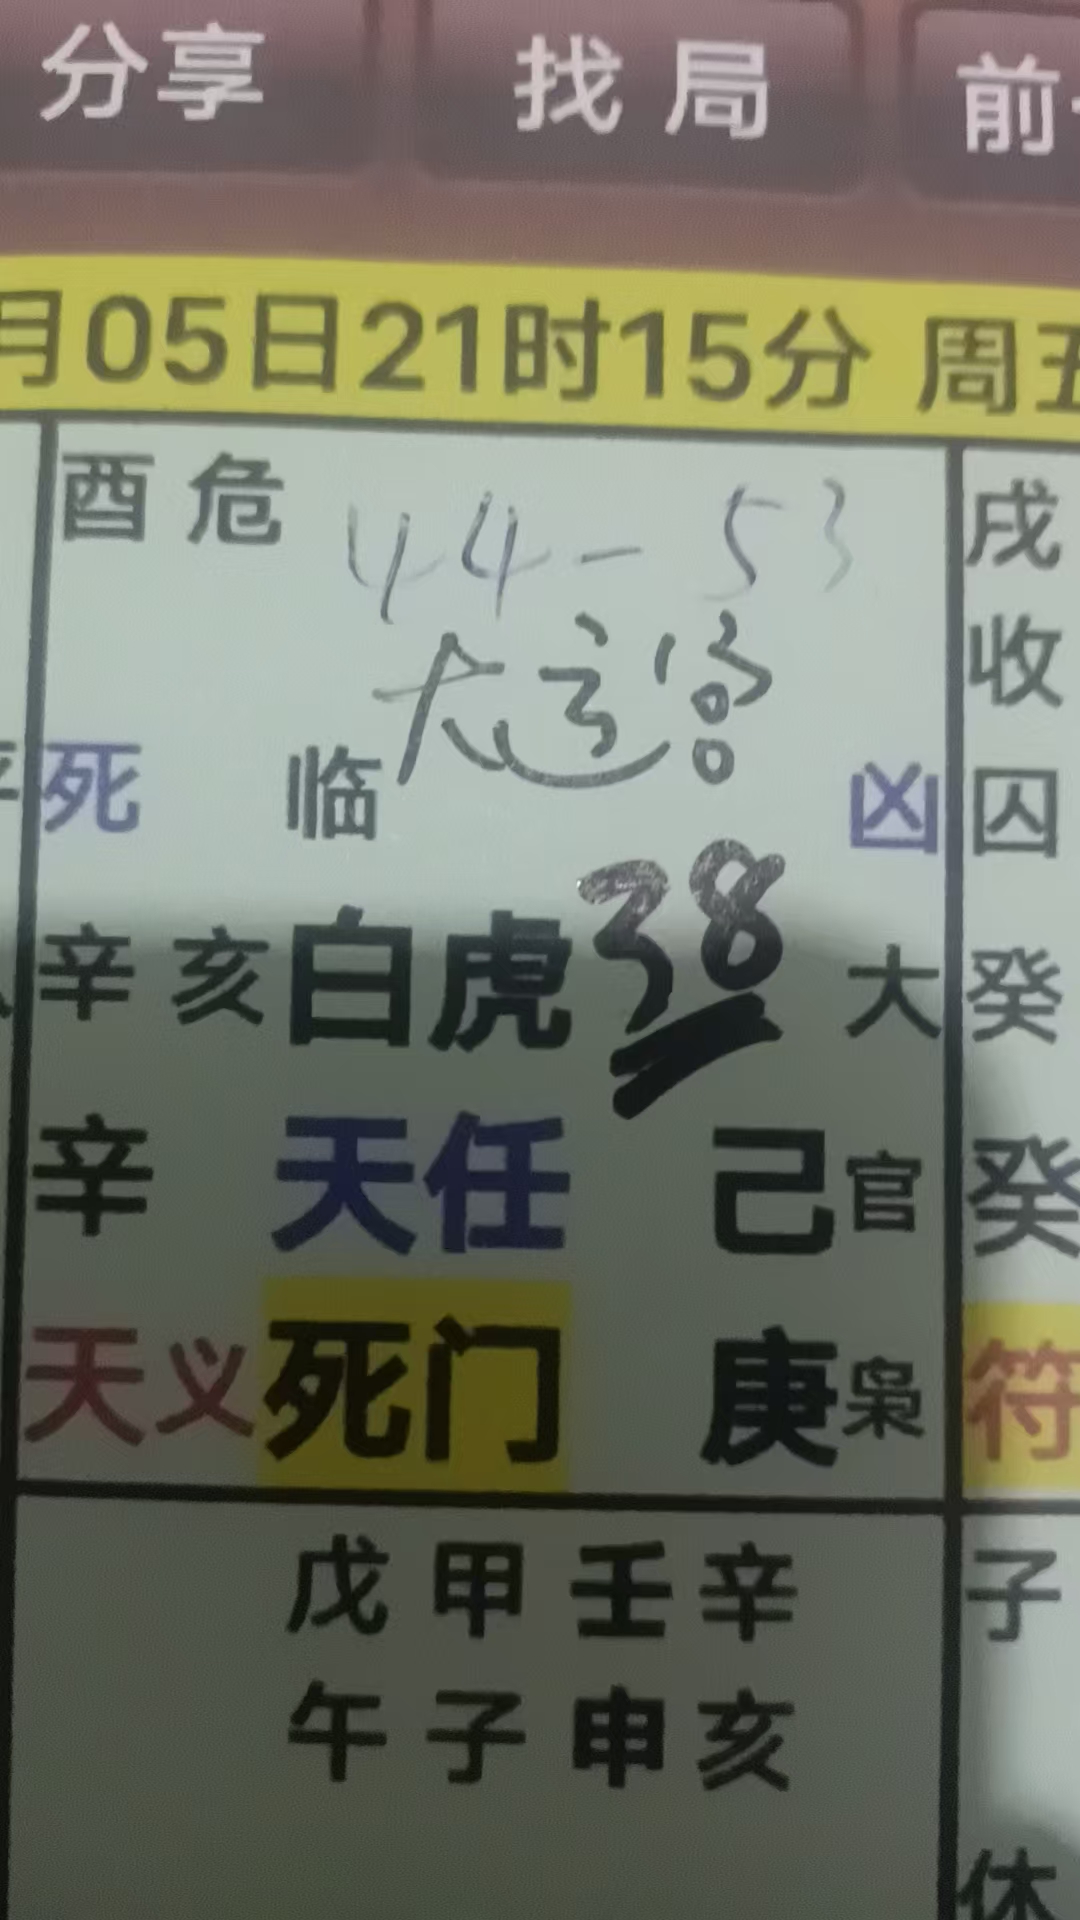 分享 找局 前
月05日21时15分 周五
酉 危 44-53 戌
大运宫 收
死 临 凶 囚
辛 亥 白虎 38 大 癸
辛 天任 己 官 癸
天 义 死门 庚 枭 符
戊 甲 壬 辛 子
午 子 申 亥
休